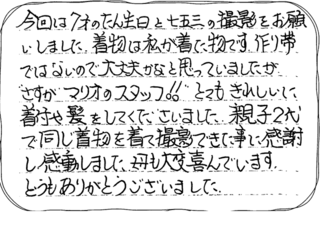 今回は7才のたん生日と七五三の撮影をお願
いしました。着物は私が着た物です。作り帯
ではないので大丈夫かなと思っていましたが
さすがマリオのスタッフ!! とてもきれいに
着付や髪をしてくださいました。親子2代
で同じ着物を着て撮影できた事に感謝
し感動しました。母も大変喜んでいます。
どうもありがとうございました。